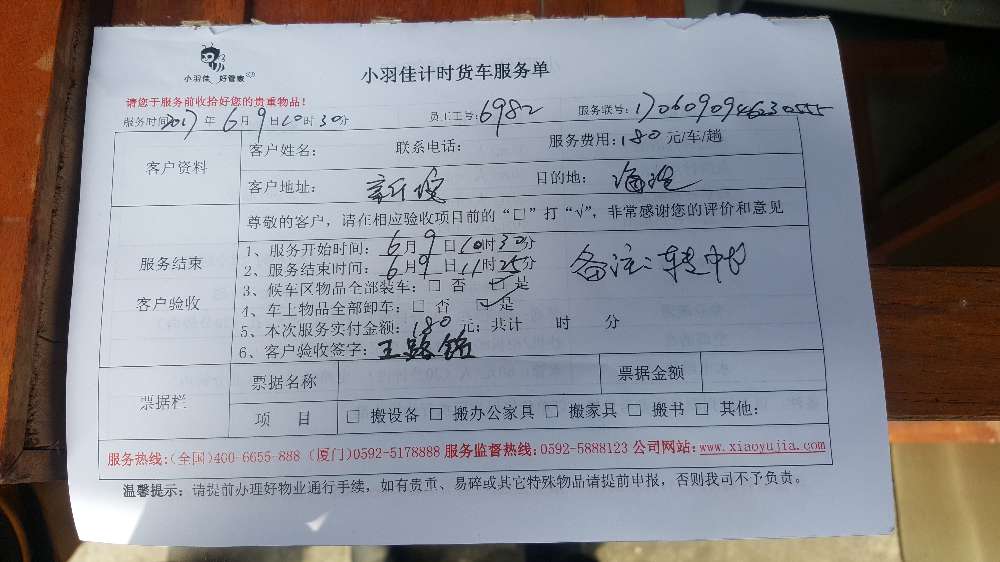 小羽佳 好管家
小羽佳计时货车服务单
请您于服务前收拾好您的贵重物品！
服务时间2017年6月9日10时30分 员工工号：6982 服务联号：
客户资料
客户姓名： 联系电话： 服务费用：180元/车/趟
客户地址： 目的地：
尊敬的客户，请在相应验收项目前的“□”打“√”，非常感谢您的评价和意见
服务结束
客户验收
1、服务开始时间：6月9日10时30分
2、服务结束时间：6月9日11时25分
3、候车区物品全部装车：□ 否 ☑ 是
4、车上物品全部卸车：□ 否 ☑ 是
5、本次服务实付金额：180元；共计 时 分
6、客户验收签字：王路铭
备注：
票据栏
票据名称 票据金额
项 目 □ 搬设备 □ 搬办公家具 □ 搬家具 □ 搬书 □ 其他：
服务热线：(全国)400-6655-888 (厦门)0592-5178888 服务监督热线：0592-5888123 公司网站：www.xiaoyujia.com
温馨提示：请提前办理好物业通行手续，如有贵重、易碎或其它特殊物品请提前申报，否则我司不予负责。